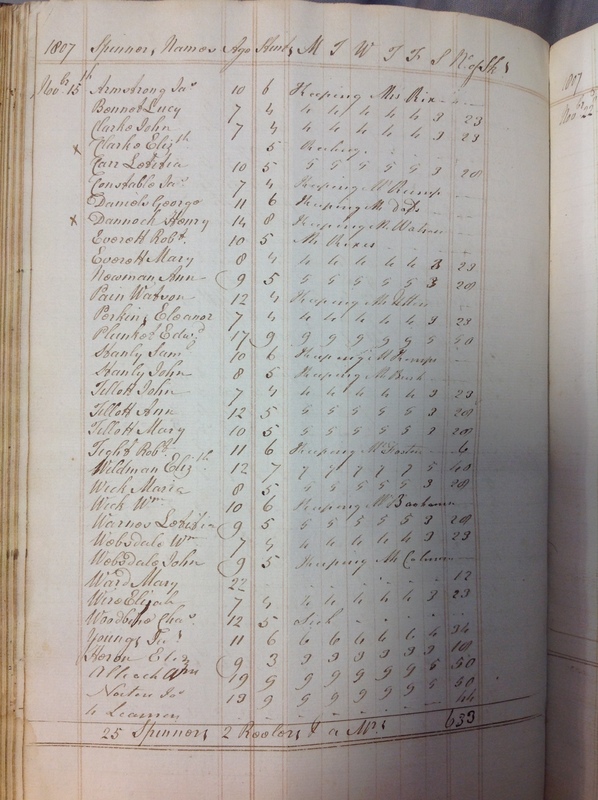 1807 Spinners Names Age Hunts M T W T F S No of Shs
Novbr 15th Armstrong Jas 10 6 Keeping Mrs Rix
Bennet Lucy 7 4 4 4 4 4 4 3 23
Clarke John 7 4 4 4 4 4 4 3 23
x Clarke Elizth 5 Reeling
Carr Letitia 10 5 5 5 5 5 5 3 28
Constable Jas 7 4 Keeping Mr Rump
Daniels George 11 6 Keeping Mr
x Dannock Henry 14 8 Keeping Mr Watson
Everett Robt 10 5 Mr Rixes
Everett Mary 8 4 4 4 4 4 4 3 23
Newman Ann 9 5 5 5 5 5 5 3 28
Pain Watson 12 4 Keeping Mr
Perkins Eleanor 7 4 4 4 4 4 4 3 23
Plunket Edwd 17 9 9 9 9 9 9 5 50
Stanly Saml 10 6 Keeping Mr Kemps
Stanly John 8 5 Keeping Mr
Tillott John 7 4 4 4 4 4 4 3 23
Tillott Ann 12 5 5 5 5 5 5 3 28
Tillott Mary 10 5 5 5 5 5 5 3 28
Tight Robt 11 6 Keeping Mr Foster 6
Wildman Elizth 12 7 7 7 7 7 7 5 40
Weck Maria 8 5 5 5 5 5 5 3 28
Weck Wm 10 6 Keeping Mr
Warnes Letitia 9 5 5 5 5 5 5 3 28
Websdale Wm 7 4 4 4 4 4 4 3 23
Websdale John 9 5 Keeping Mr Colman
Ward Mary 22 12
Wire Elijah 7 4 4 4 4 4 4 3 23
Woodbine Chas 12 5 Sick
Youngs 11 6 6 6 6 6 6 4 34
Heron Eliz 9 3 3 3 3 3 3 3 18
Allcock Ann 19 9 9 9 9 9 9 5 50
Norton Jas 13 9 9 9 9 9 9 5 50
4 Learners 44
25 Spinners 2 Reelers & a Mrs 633
1807
Novbr 22